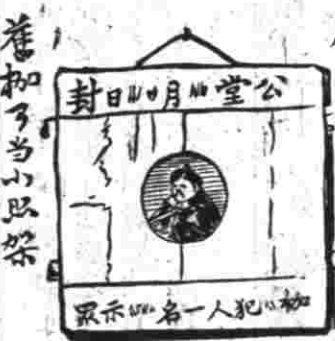 舊枷可当小照架
公堂〃月〃日封
枷〃犯人一名〃示眾